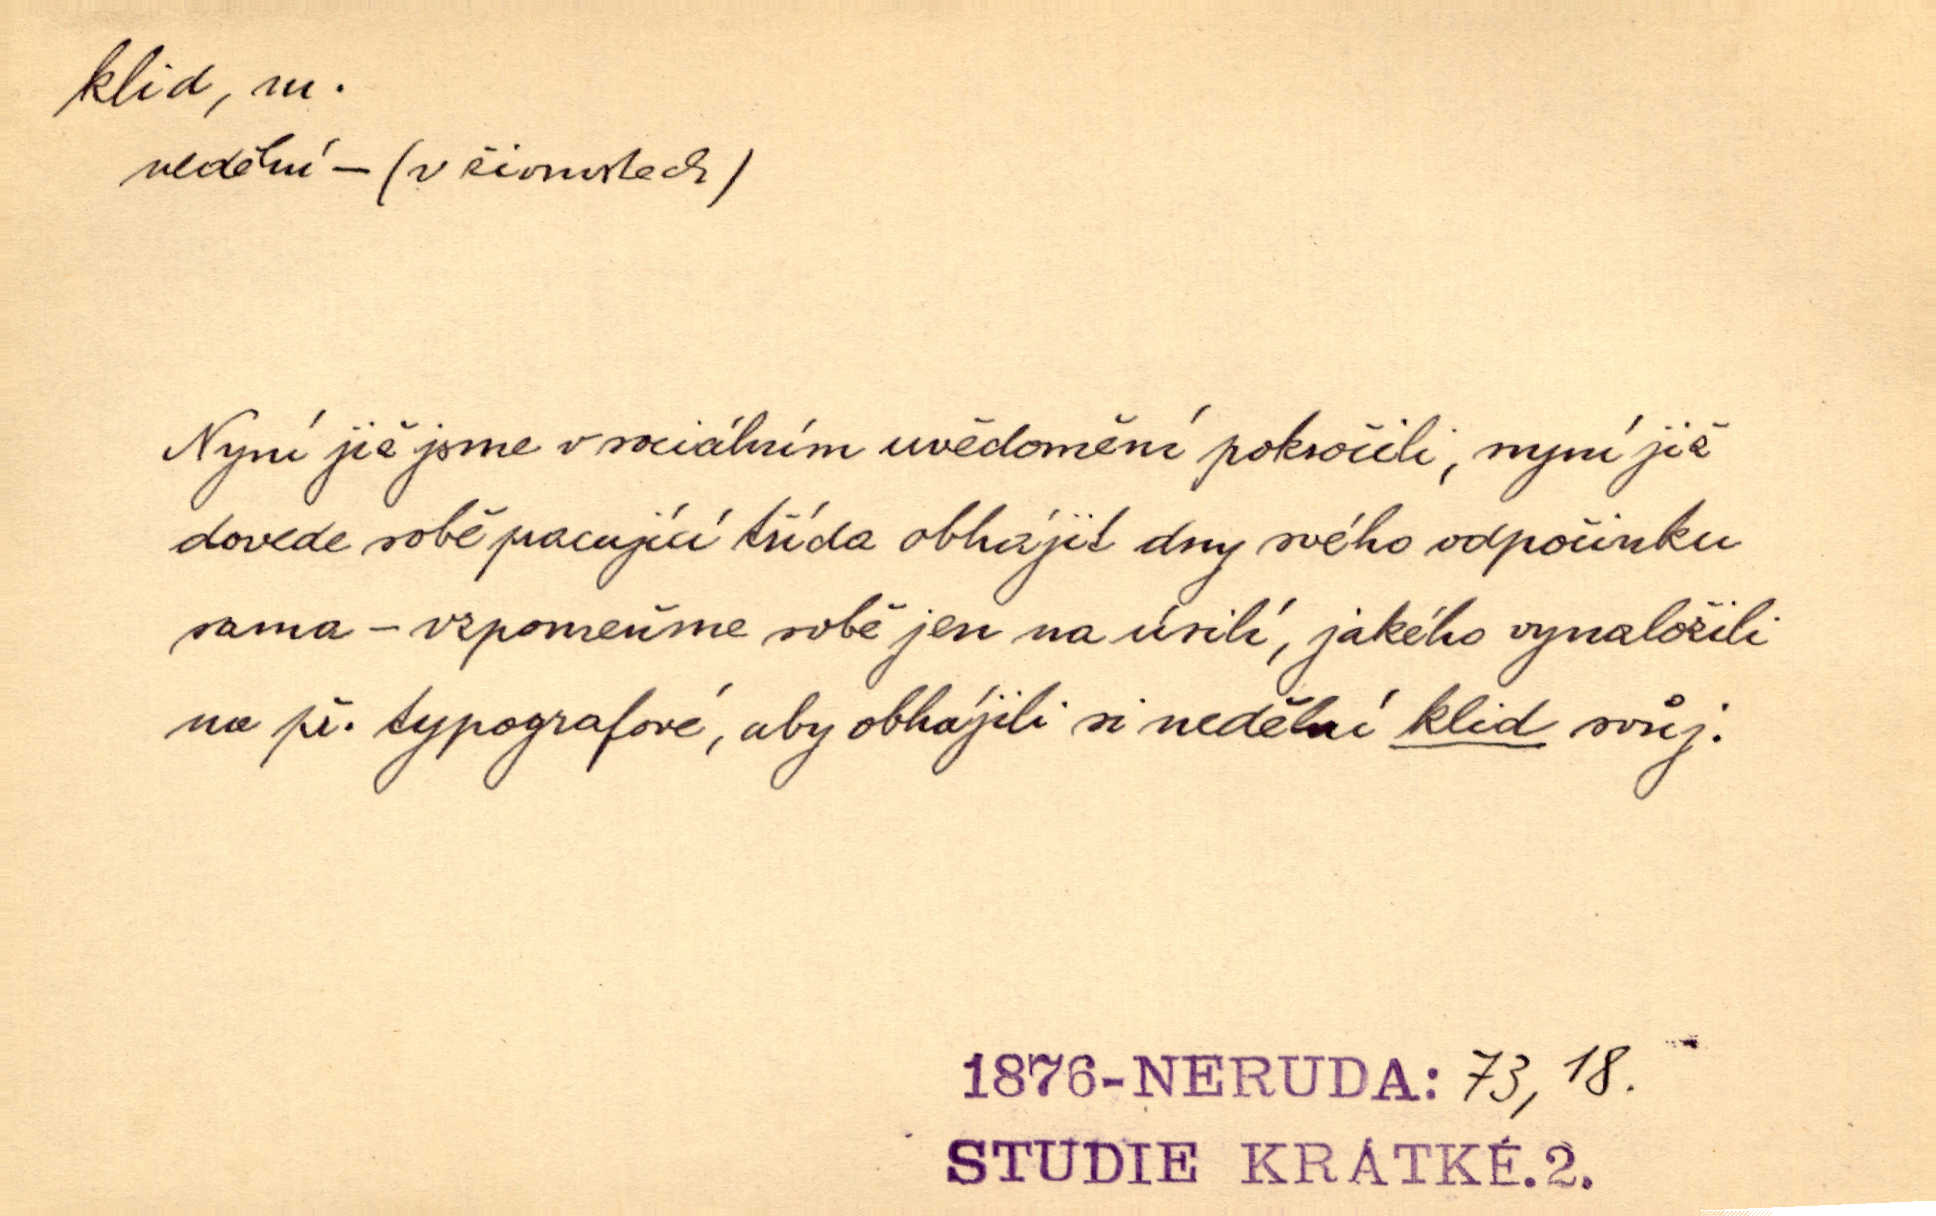 klid, m.
nedělní – (v živnostech)
Nyní již jsme v sociálním uvědomění pokročili, nyní již
dovede sobě pracující třída obhájit dny svého odpočinku
sama – vzpomeňme sobě jen na úsilí, jakého vynaložili
na př. typografové, aby obhájili si nedělní klid svůj.
1876-NERUDA: 73, 18.
STUDIE KRÁTKÉ.2.